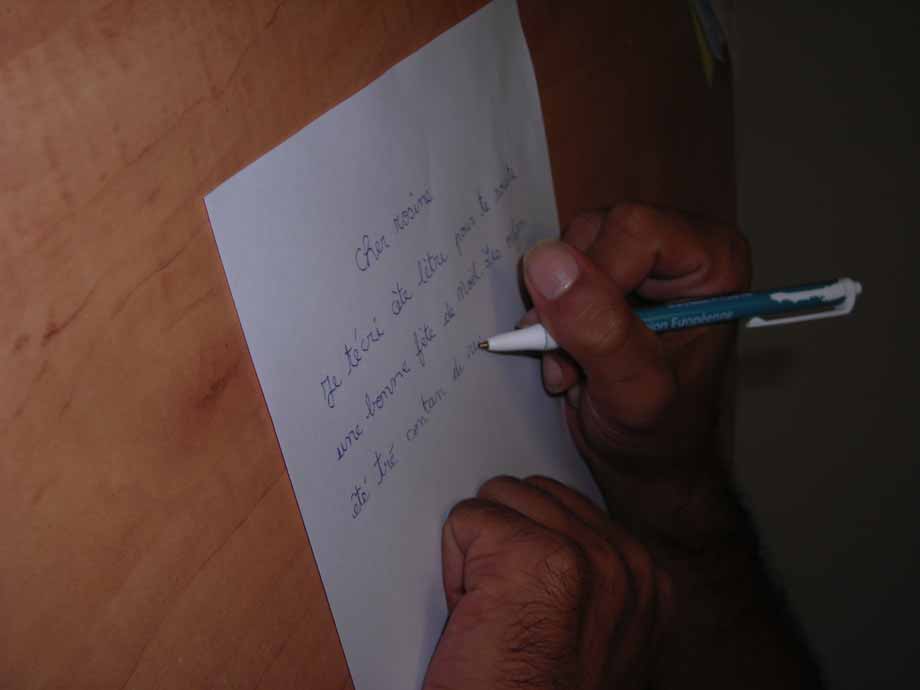 Cher rosine
Je técri cête lètre pour te souète
une bonne fête de noel. Les
été trè contan di
ion Européenne